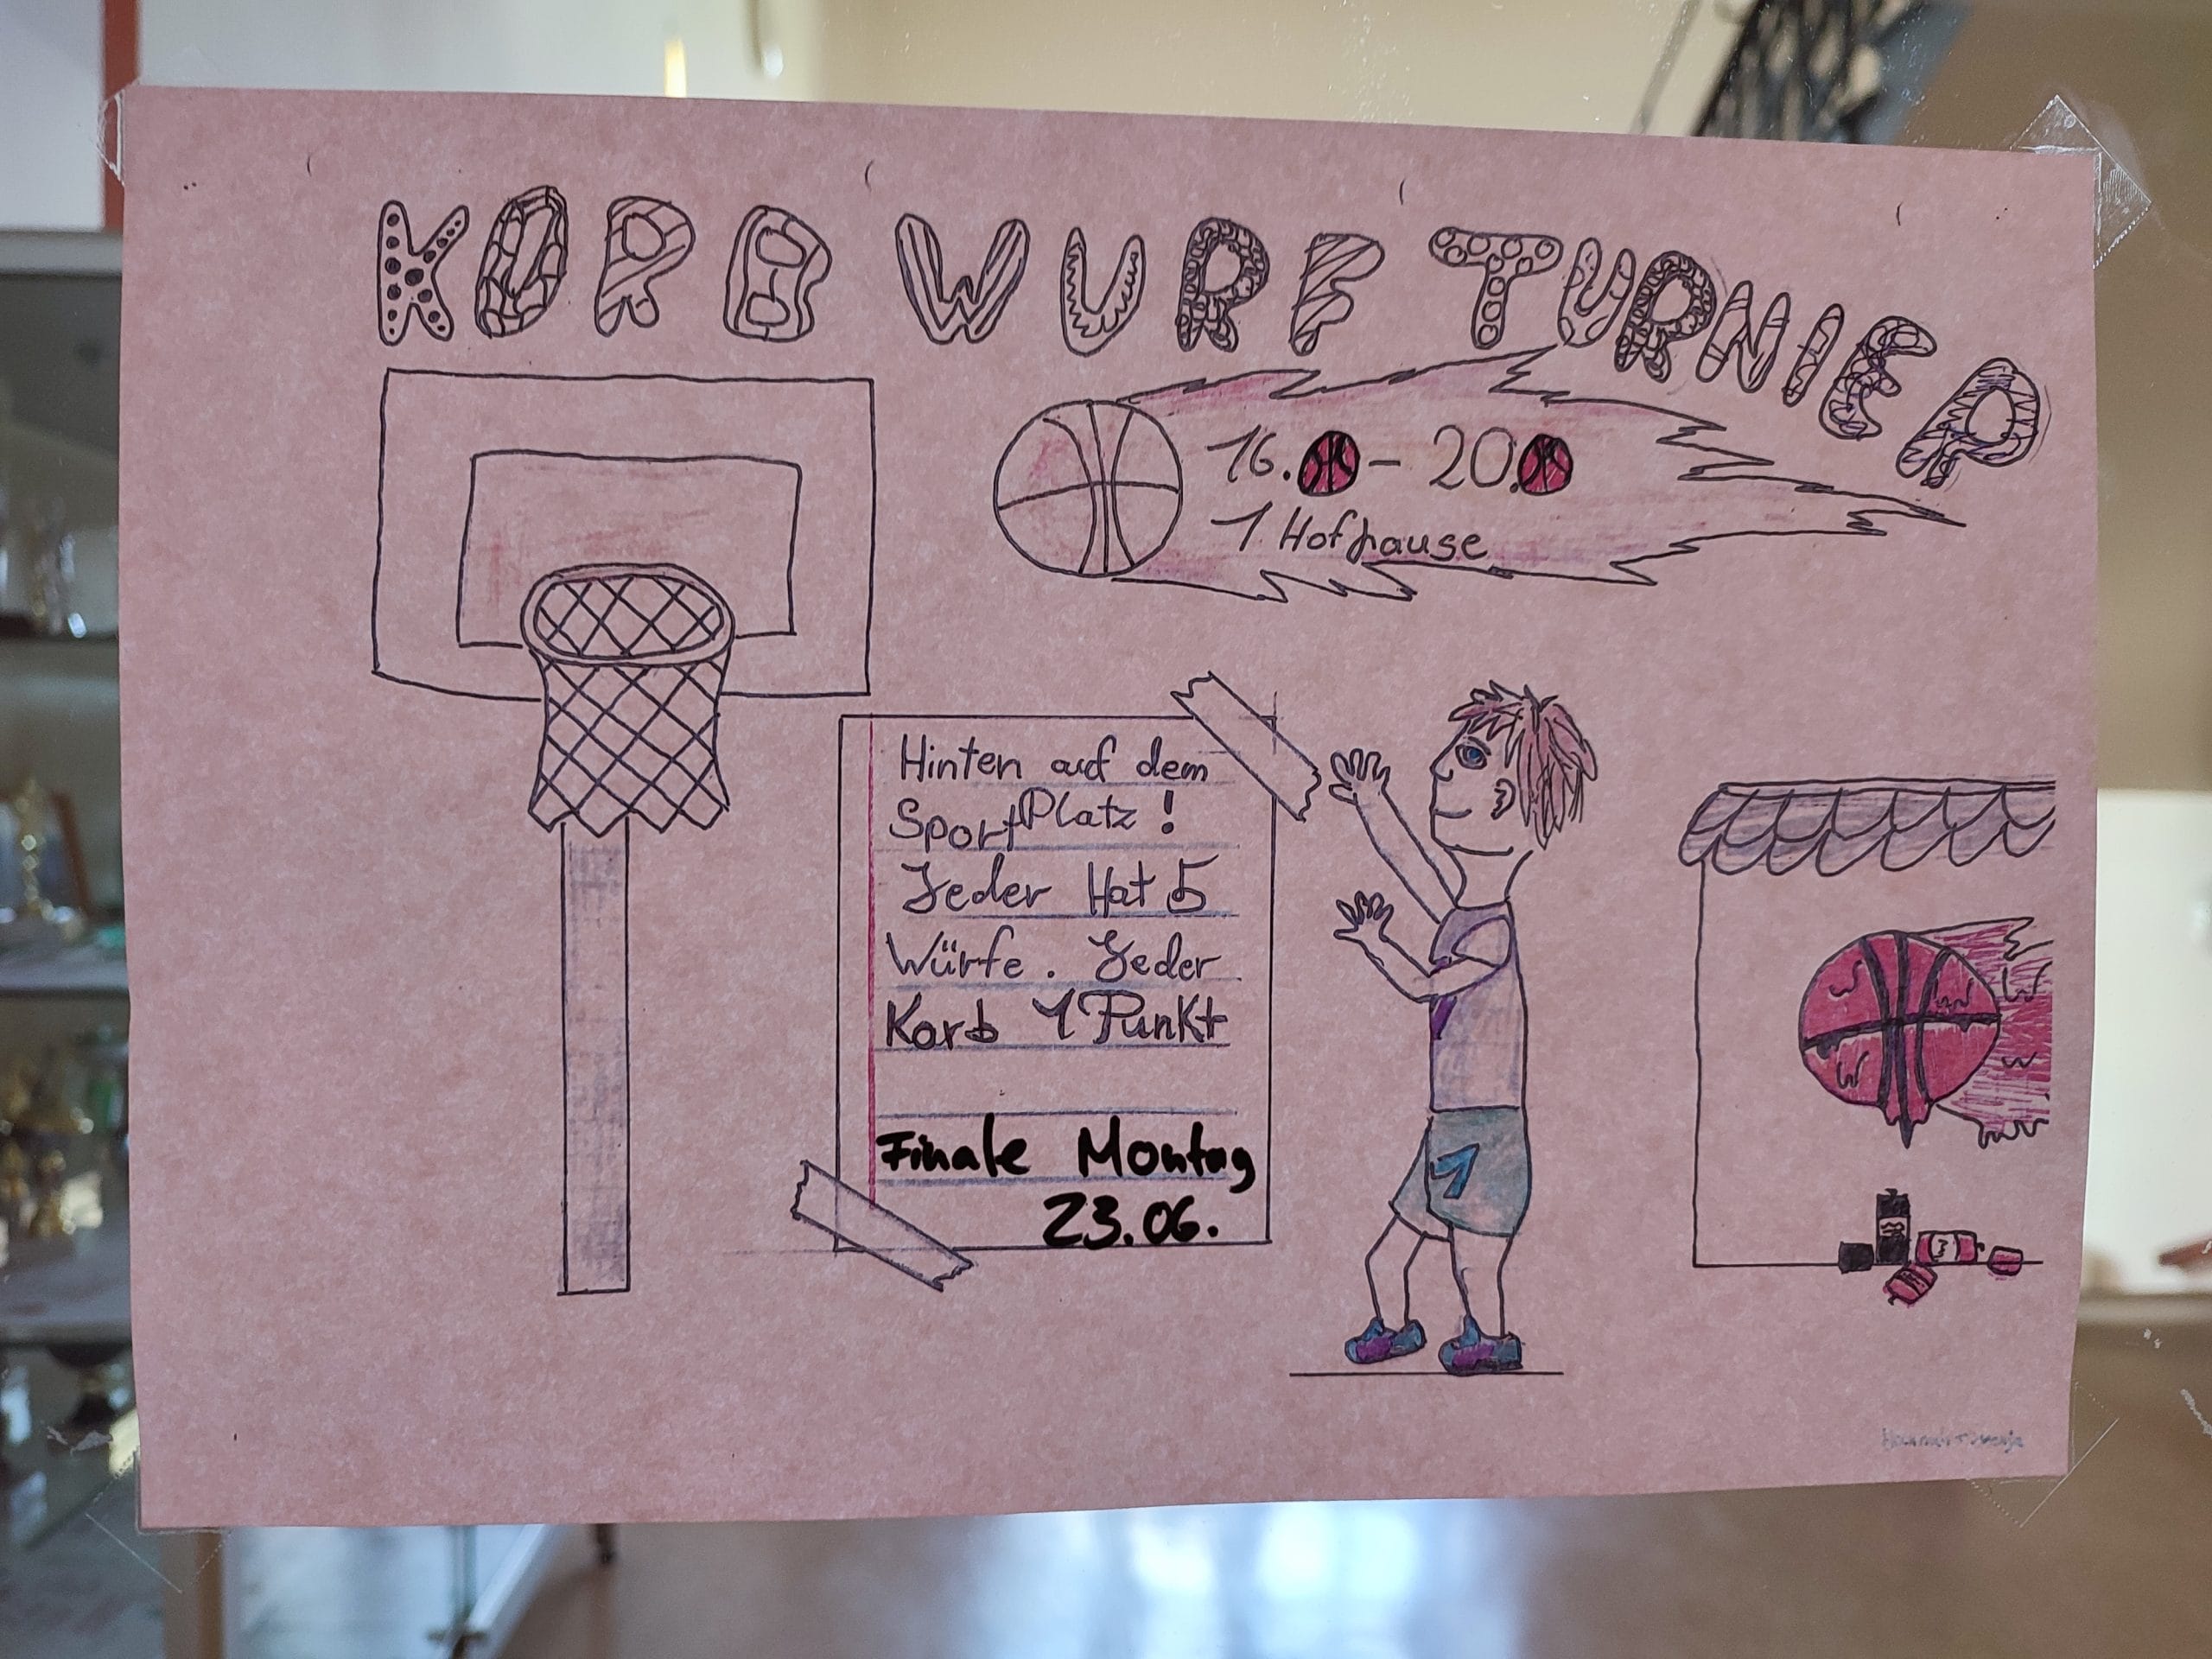 KORB WURF TURNIER
16. - 20.
1 Hofpause
Hinten auf dem
SportPlatz !
Jeder Hat 5
Würfe. Jeder
Korb 1 Punkt
Finale Montag
23.06.
1